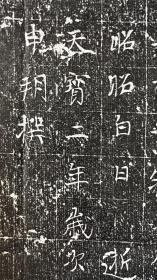 昭昭白日逝
天寶二年歲次
申朔撰